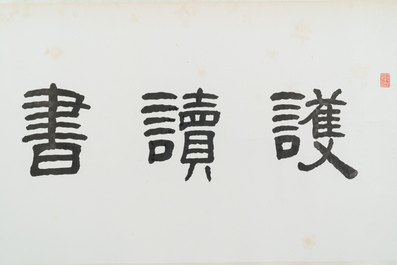 護讀書